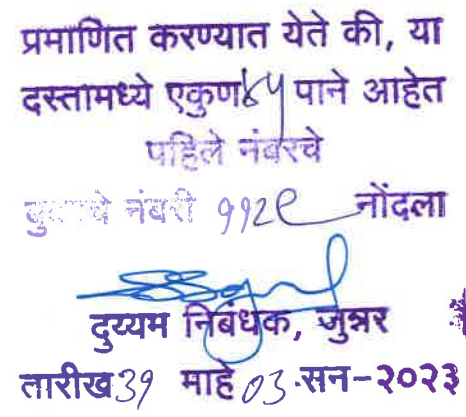 प्रमाणित करण्यात येते की, या
दस्तामध्ये एकुण ४५ पाने आहेत
पहिले नंबरचे
बुकाचे नंबरी ११२९ नोंदला
दुय्यम निबंधक, जुन्नर
तारीख ३१ माहे ०३ सन-२०२३